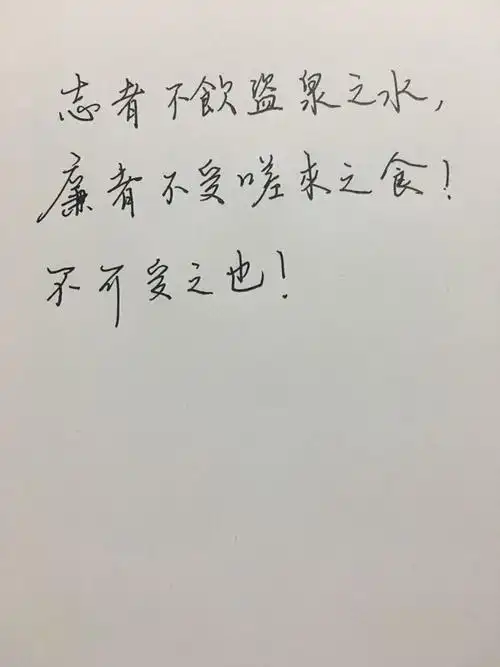 志者不飲盗泉之水，
廉者不受嗟来之食！
不可受之也！